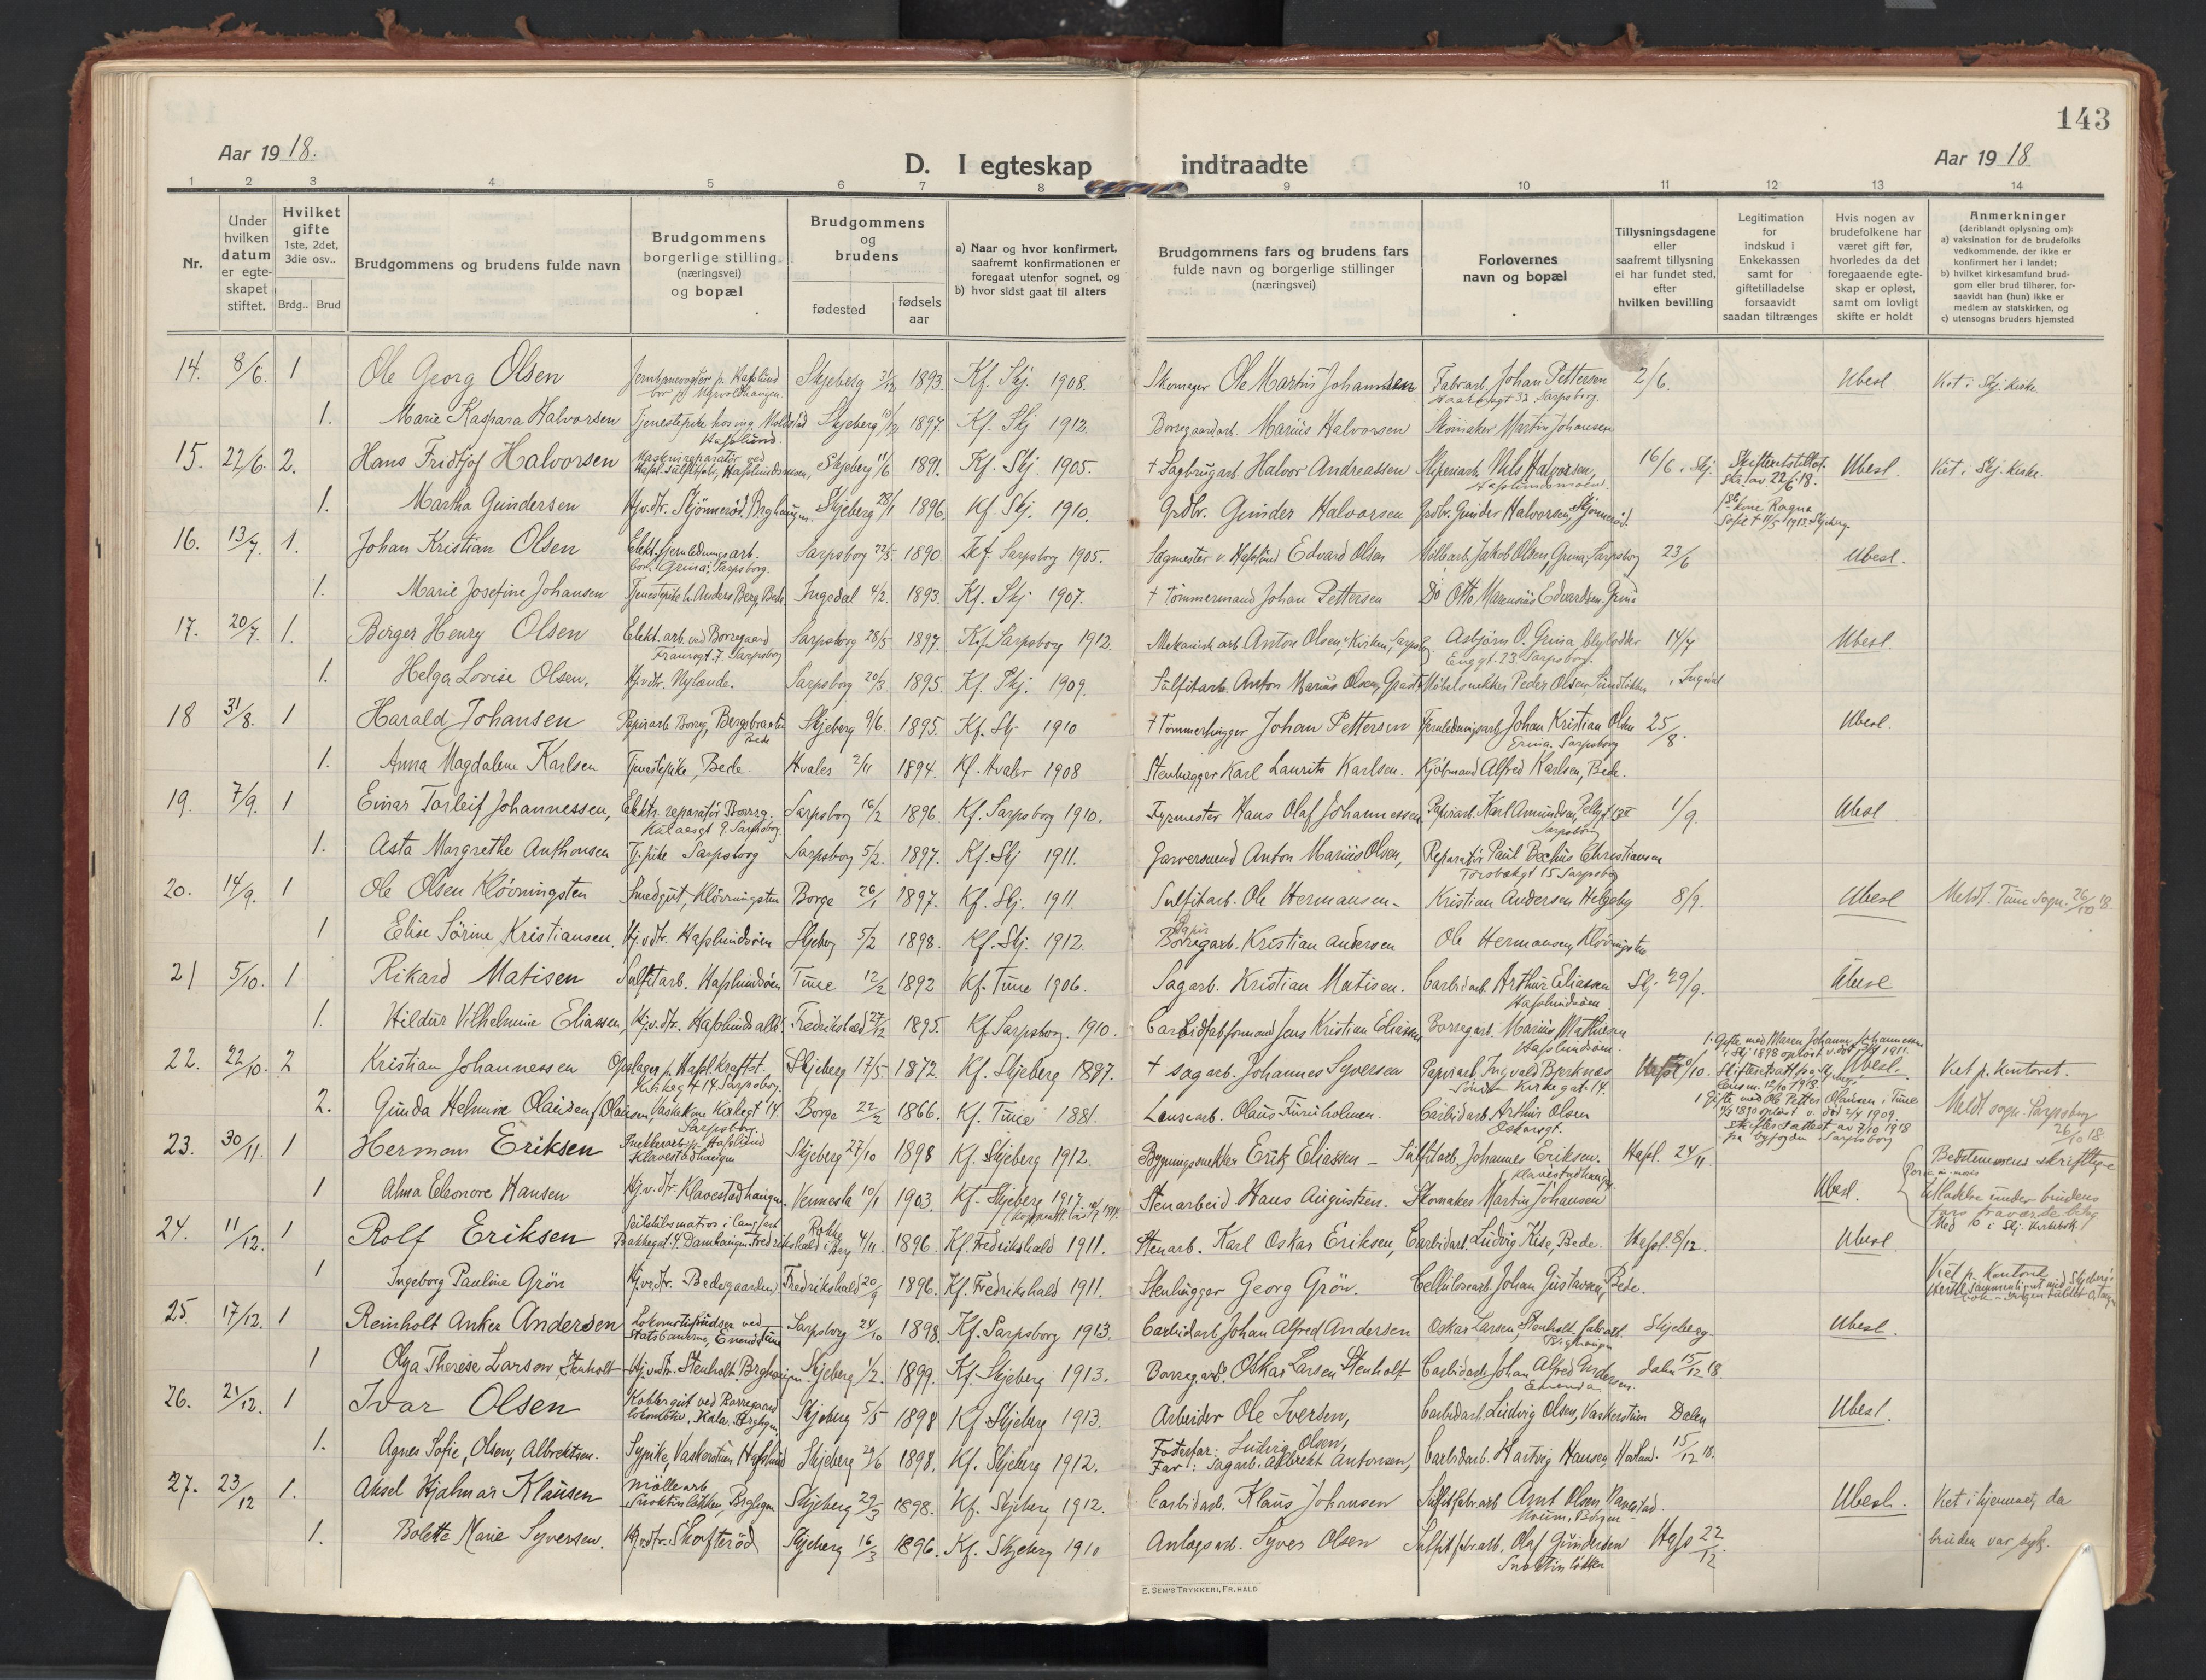 143
Aar 1918.
D. I egteskap indtraadte
Aar 1918
1 2 3 4 5 6 7 8 9 10 11 12 13 14
Nr.
Under hvilken datum er egteskapet stiftet.
Hvilket gifte 1ste, 2det, 3die osv..
Brdg.. Brud
Brudgommens og brudens fulde navn
Brudgommens borgerlige stilling (næringsvei) og bopæl
Brudgommens og brudens
fødested
fødsels aar
a) Naar og hvor konfirmert, saafremt konfirmationen er foregaat utenfor sognet, og
b) hvor sidst gaat til alters
Brudgommens fars og brudens fars fulde navn og borgerlige stillinger (næringsvei)
Forlovernes navn og bopæl
Tillysningsdagene eller saafremt tillysning ei har fundet sted, efter hvilken bevilling
Legitimation for indskud i Enkekassen samt for giftetilladelse forsaavidt saadan tiltrænges
Hvis nogen av brudefolkene har været gift før, hvorledes da det foregaaende egteskap er opløst, samt om lovligt skifte er holdt
Anmerkninger (deriblandt oplysning om):
a) vaksination for de brudefolks vedkommende, der ikke er konfirmert her i landet;
b) hvilket kirkesamfund brudgom eller brud tilhører, forsaavidt han (hun) ikke er medlem av statskirken, og
c) utensogns bruders hjemsted
14. 8/6. 1 Ole Georg Olsen Skjeberg 31/12 1893. Kf. Skj. 1908. Skomager Ole Martin Johannsen Fabrarb. Johan Pettersen Sarpsborg. 2/6. Ubesl Viet i Skj. kirke
1. Marie Kaspara Halvorsen Haslund. Skjeberg 1897. Kf. Skj 1912. Borregaardarb. Marius Halvorsen Skomaker Martin Johansen
15. 22/6. 2. Hans Fridtjof Halvorsen Skjeberg 11/6 1891. Kf. Skj. 1905. † Sagbrugarb Halvor Andreassen Nils Halvorsen, 16/6. Skj. Skifteretsattest. skr. av. 22/6. 18. Ubesl. Viet i Skj. kirke.
1. Martha Gundersen Skjeberg 28/1 1896. Kf. Skj. 1910. Grdbr. Gunder Halvorsen Grdbr. Gunder Halvorsen, 1ste kone Ragna Sofie † 11/5 1913. Skjeberg
16. 13/7. 1. Johan Kristian Olsen Elekt. fjernledningsarb. bor: Grina, Sarpsborg. Sarpsborg 22/5 1890. Kf. Sarpsborg 1905. Sagmester v. Hafslund Edvard Olsen Jakob Olsen, Grina, Sarpsborg 23/6 Ubesl.
1. Marie Josefine Johansen Tjenestpike h. Anders Berg, Bede Ingedal 4/2. 1893. Kf. Skj 1907. † Tømmermand Johan Pettersen Do Otto Edvardsen. Grina
17. 20/7. 1. Birger Henry Olsen Elekt. arb. ved Borregaard 7. Sarpsborg Sarpsborg 28/5 1897. Kf. Sarpsborg 1912. Mekanisk arb Anton Olsen, Asbjørn O. Grina, Enggt. 23. Sarpsborg. 14/7 Ubesl.
1. Helga Lovise Olsen, Hj.v.dtr. Nylænde. Sarpsborg 20/3. 1895. Kf. Skj. 1909. Sulfitarb. Anton Marius Olsen, Møbelsnekker Peder Olsen
18 31/8. 1 Harald Johansen Papirarb Borreg, Bergsbraaten Bede Skjeberg 9/6. 1895. Kf. Skj 1910 † Tømmerhugger Johan Pettersen Fjernledningsarb. Johan Kristian Olsen Grina. Sarpsborg 25/8. Ubesl.
1. Anna Magdalene Karlsen Tjenestepike, Bede. Hvaler 2/11 1894. Kf. Hvaler 1908 Stenhugger Karl Laurits Karlsen. Kjøbmand Alfred Karlsen, Bede.
19. 7/9. 1 Einar Torleif Johannessen, Elektr. reparatør Borreg. 9. Sarpsborg. Sarpsborg 16/2 1896. Kf. Sarpsborg 1910. Fyrmester Hans Olaf Johannessen Papirarb. Karl Amundsen, Sarpsborg 1/9. Ubesl
1. Asta Margrethe Anthonsen Tj. pike Sarpsborg Sarpsborg 5/2. 1897. Kf. Skj 1911. Garversvend Anton Marius Olsen, Reparatør Paul Christiansen 15 Sarpsborg
20. 14/9. 1 Ole Olsen Kløvningsten Smedgut, Kløvningsten Borge 26/1 1897. Kf. Skj. 1911. Sulfitarb. Ole Hermansen. Kristian Andersen Helgeby 8/9. Ubesl Meldt. Tune sogn. 26/10 18.
1 Elise Sørine Kristiansen. Hj.v.dtr. Hafslundsøen Skjeberg 5/2 1898. Kf. Skj. 1912. Papir Borregarb. Kristian Andersen Ole Hermansen, Kløvningsten
21 5/10. 1 Rikard Matisen Sulfitarb. Hafslundsøen Tune 12/2 1892 Kf. Tune 1906. Sagarb. Kristian Matisen. Carbidarb. Arthur Eliassen Hafslundsøen Skj. 29/9. Ubesl
1. Hildur Vilhelmine Eliassen, Hj.v.dtr. Hafslunds allé Fredrikshald 27/12 1895. Kf. Sarpsborg. 1910. Carbidfabformand Jens Kristian Eliassen Borregarb. Marius Mathisen Hafslundsøen
22. 22/10. 2 Kristian Johannessen Opslager p. Hafsl. Kraftst. Kirkegt 14. Sarpsborg. Skjeberg 17/5. 1872. Kf. Skjeberg 1897. † Sagarb. Johannes Syversen Papirarb. Ingvald Bjerknes Kirkegat. 14. 1. Gifte med Maren Johanne Johannessen i Skj 1898 opløst v. død 1911. Ubesl. Viet p. kontoret.
2. Gunda Helmine Olausen Vaskekone Kirkegt 14. Sarpsborg. Borge 22/2 1866. Kf. Tune 1881. Lænsearb. Olaus Furuholmen. Carbidarb. Arthur Olsen Oskarsgt. 1 Gifte med Ole Petter Olausen i Tune 1890 opløst v. død 1909. Skifteretsattest av 7/10 1918 fra byfogden i Sarpsborg Meldt sogn. Sarpsborg 26/10 18
23. 30/11. 1 Herman Eriksen Snekkerarb. p. Hafslund Klavestadhaugen Skjeberg 27/10 1898 Kf. Skjeberg 1912. Bygningssnekker Erik Eliassen - Sulfitarb. Johannes Eriksen. Klavestadhaugen Hafsl. 24/11.
1 Alma Eleonore Hansen Hj.v.dtr. Klavestadhaugen. Vennesla 10/1 1903. Kf. Skjeberg 1917. Stenarbeid Hans Augustsen. Skomaker Martin Johansen Ubesl. Bedstemorens skriftlige tilladelse under brudens fars fravær
24. 11/12. 1 Rolf Eriksen Bakkegat. 4. Damhaugen Fredrikshald Rokke i Berg 4/11. 1896. Kf. Fredrikshald 1911. Stenarb. Karl Oskar Eriksen, Carbidarb. Ludvig Kise, Bede. Hafsl. 8/12. Ubesl
1 Ingeborg Pauline Grøn Hj.v.dtr. Bedegaarden Fredrikshald 20/9 1896. Kf. Fredrikshald 1911. Stenhugger Georg Grøn. Cellulosearb. Johan Gustavsen, Bede. Viet p. kontoret
25. 17/12. 1 Reinholt Anker Andersen Lokomotivpudser ved Statsbanerne, Enenda, Tune Sarpsborg 24/10 1898. Kf. Sarpsborg 1913. Carbidarb Johan Alfred Andersen Oskar Larsen, Stenholt, fabrarb. Skjeberg Ubesl.
1 Olga Therese Larsen, Stenholt Hj.v.dtr. Stenholt. Skjeberg 1/2. 1899. Kf. Skjeberg 1913. Borreg.arb. Oskar Larsen Stenholt Carbidarb Johan Alfred Andersen. Enenda Dalen 15/12 18.
26. 21/12. 1 Ivar Olsen Koblergut ved Borregaard Skjeberg 5/5 1898 Kf Skjeberg 1913. Arbeider Ole Iversen, Carbidarb. Ludvig Olsen, Dalen Ubesl.
1. Agnes Sofie, Olsen, Albrektsen. Sypike, Hafslund Skjeberg 29/6 1898. Kf. Skjeberg 1912. Fosterfar: Ludvig Olsen, Far: Sagarb. Albrekt Antonsen, Carbidarb. Hartvig Hansen, 15/12 18.
27. 23/12 1. Aksel Hjalmar Klausen Møllearb Skjeberg 29/3 1898. Kf. Skjeberg 1912. Carbidarb. Klaus Johansen Sulfitfabr.arb Arnt Olsen Ubesl. Viet i hjemmet, da
1. Bolette Marie Syversen. Hj.v.dtr. Skofterød Skjeberg 16/3 1896. Kf. Skjeberg 1910 Anlægsarb. Syver Olsen Sulfitfabr.arb. Olaf Gundersen Hafs 22/12 bruden var syk.
E. SEM'S TRYKKERI, FR.HALD